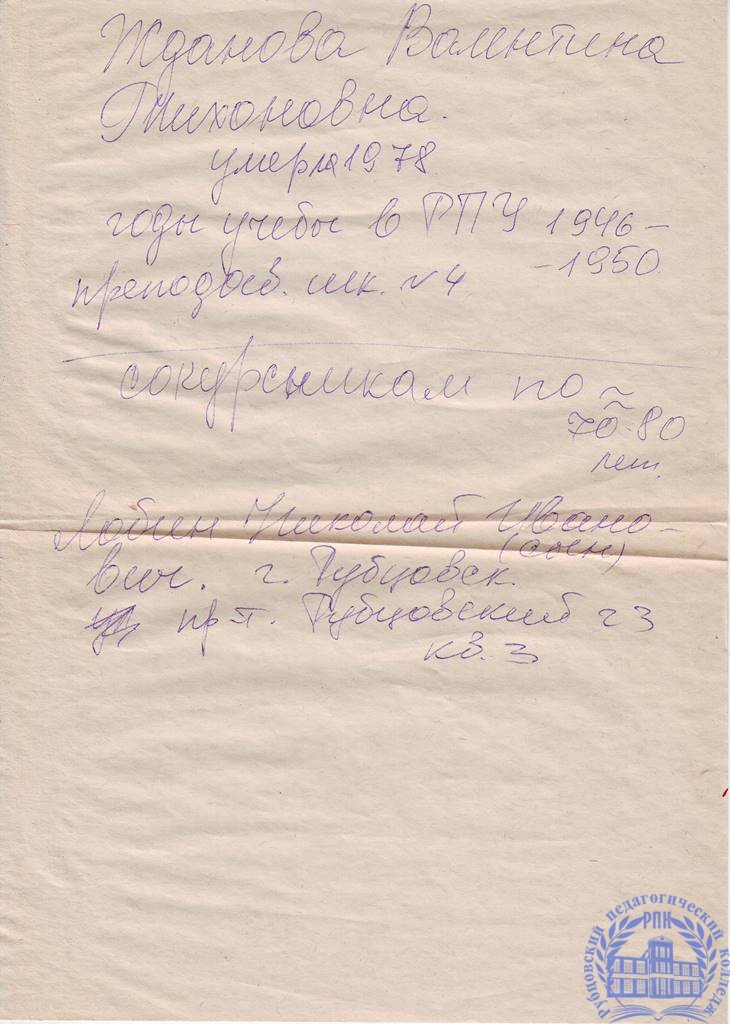 Жданова Валентина
Тихоновна.
умерла 1978
годы учебы в РПУ 1946 –
– 1950
преподов. шк. № 4
сокурсникам по ~
70-80
лет.
Лобин Николай Ивано-
(сын)
вич. г. Рубцовск.
пр-т. Рубцовский 23
кв. 3
Рубцовский педагогический колледж
РПК